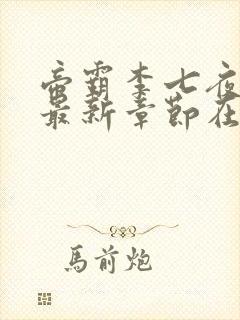 帝霸李七夜
最新章節在
馬前炮